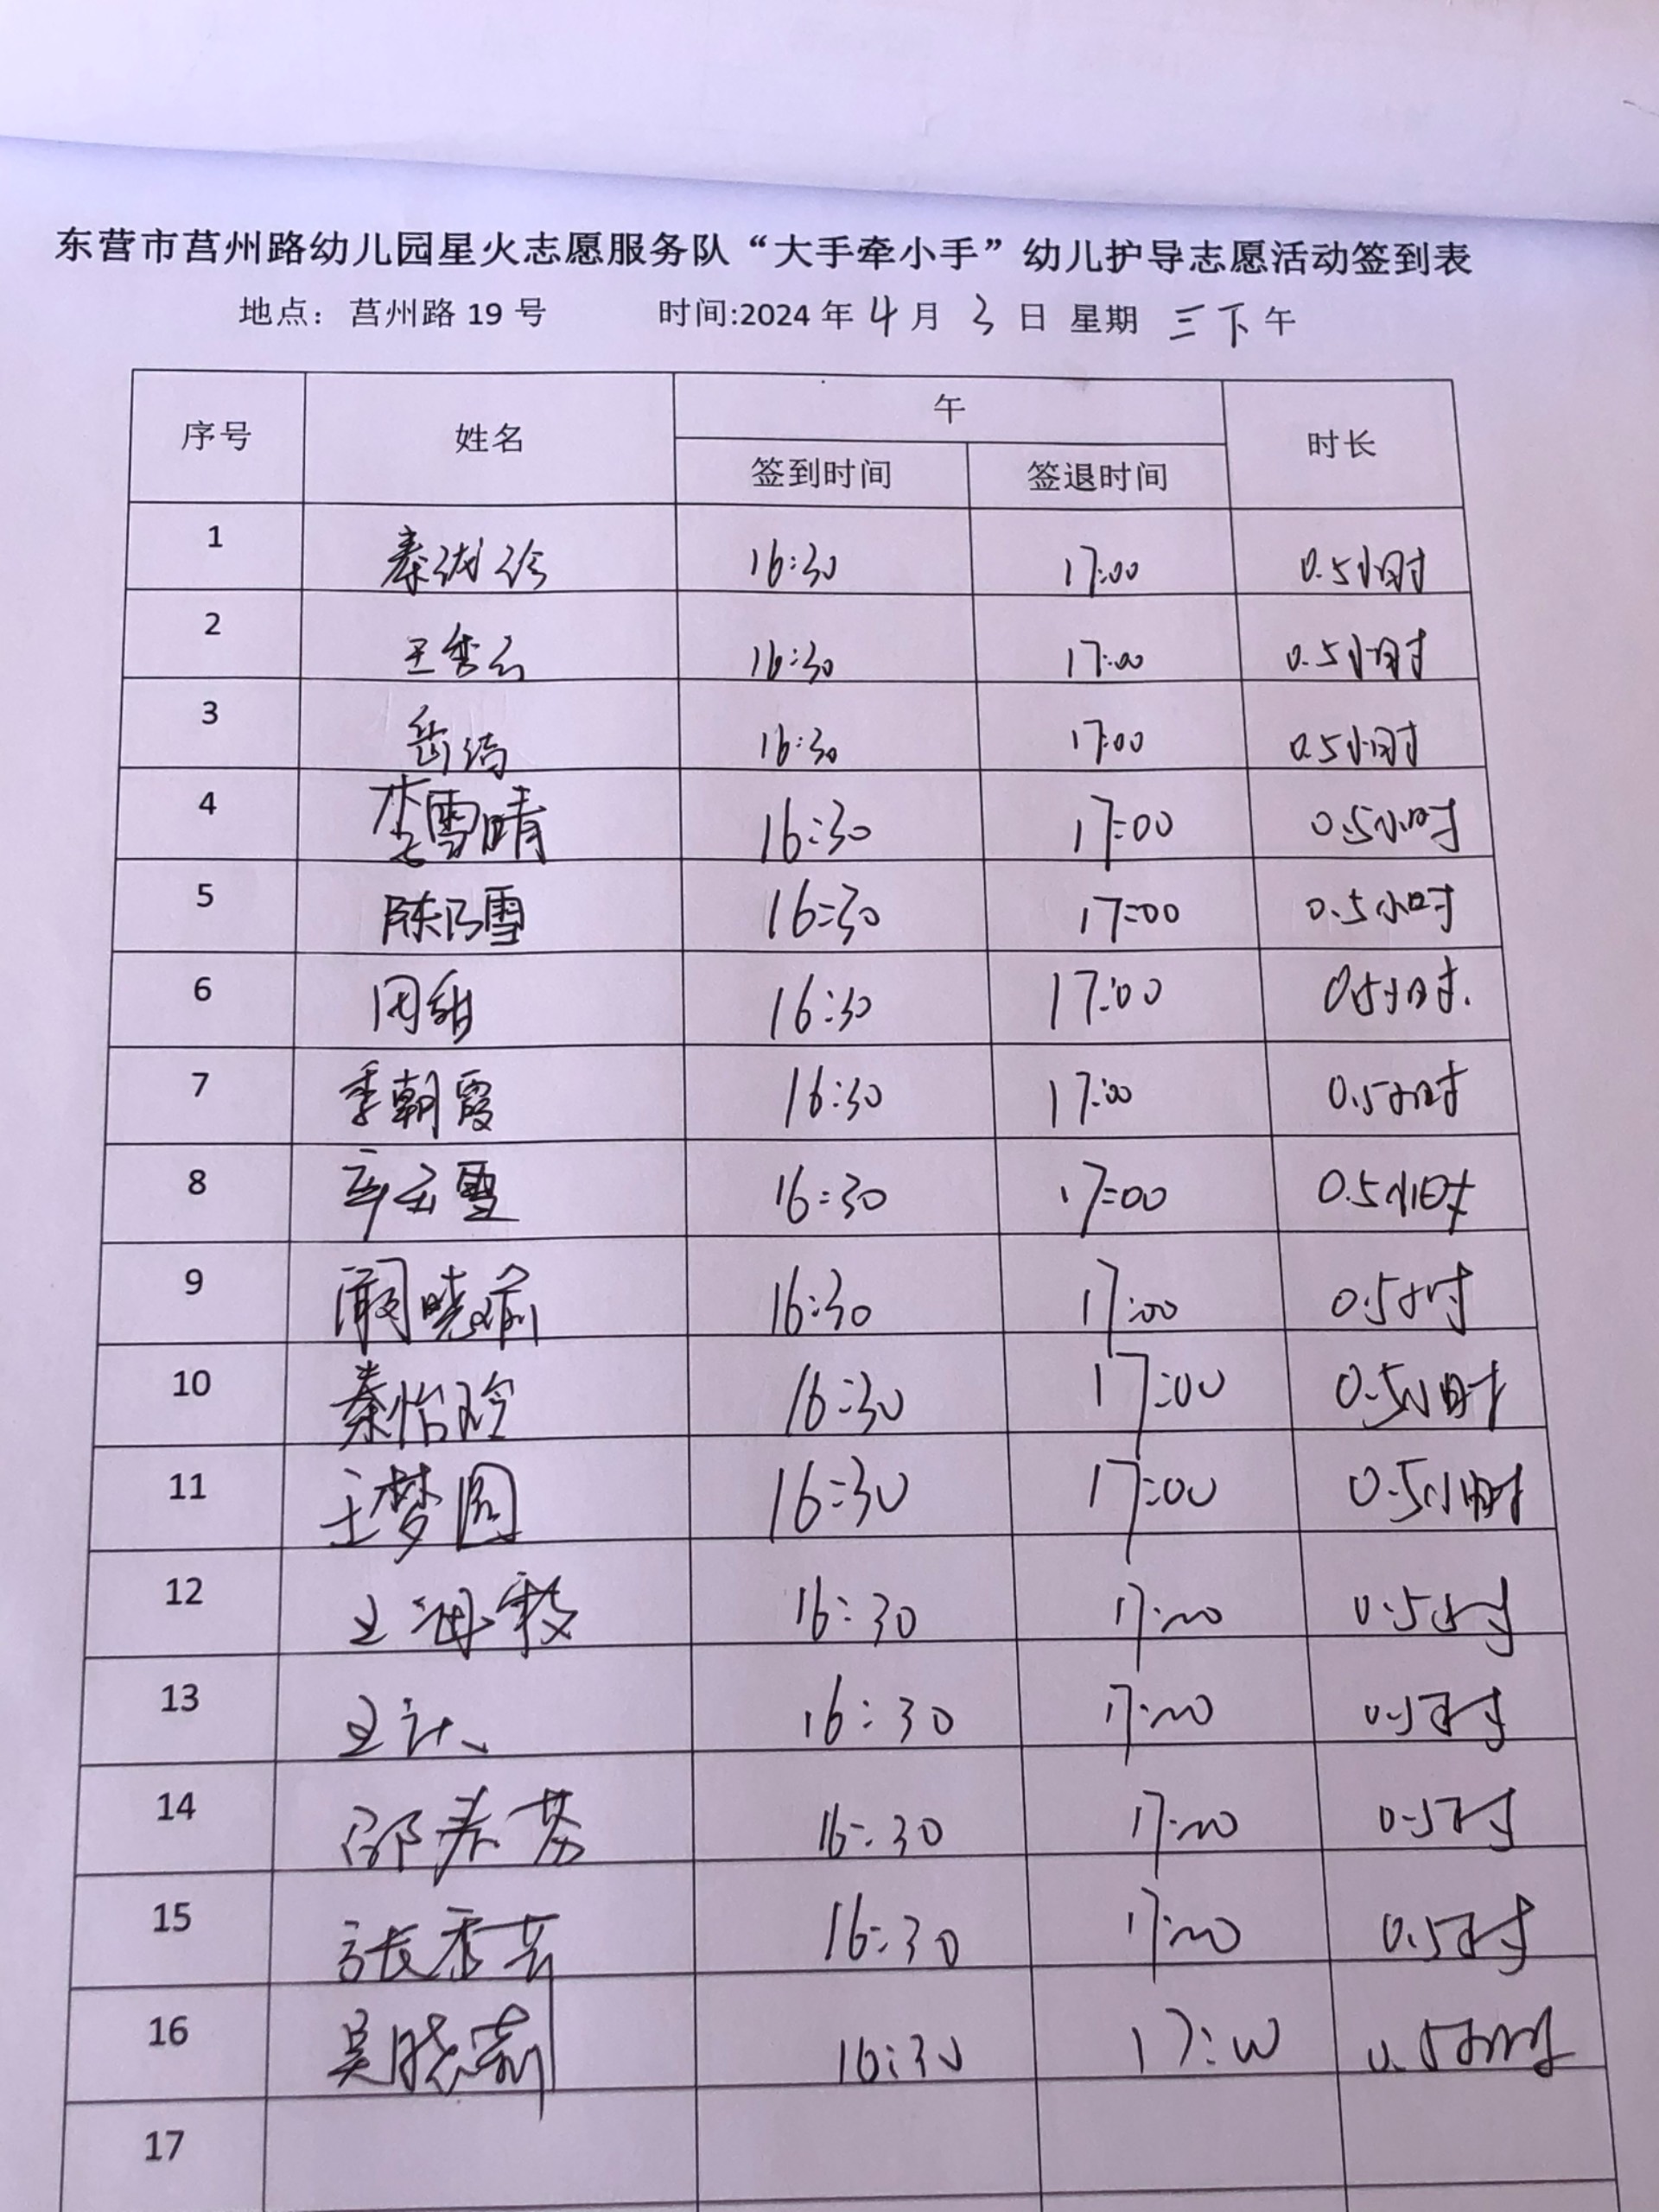 东营市莒州路幼儿园星火志愿服务队“大手牵小手”幼儿护导志愿活动签到表
地点：莒州路 19 号 时间:2024 年 4 月 3 日 星期 三 下 午
序号 姓名 午 时长
签到时间 签退时间
1 秦 16:30 17:00 0.5小时
2 王秀云 16:30 17:00 0.5小时
3 岳 16:30 17:00 0.5小时
4 李雪晴 16:30 17:00 0.5小时
5 陈乃雪 16:30 17:00 0.5小时
6 周甜 16:30 17:00 0.5小时.
7 季朝霞 16:30 17:00 0.5小时
8 雪 16:30 17:00 0.5小时
9 晓 16:30 17:00 0.5小时
10 秦怡玲 16:30 17:00 0.5小时
11 王梦圆 16:30 17:00 0.5小时
12 王海 16:30 17:00 0.5小时
13 王 16:30 17:00 0.5小时
14 邵 16:30 17:00 0.5小时
15 张秀芸 16:30 17:00 0.5小时
16 吴晓莉 16:30 17:00 0.5小时
17